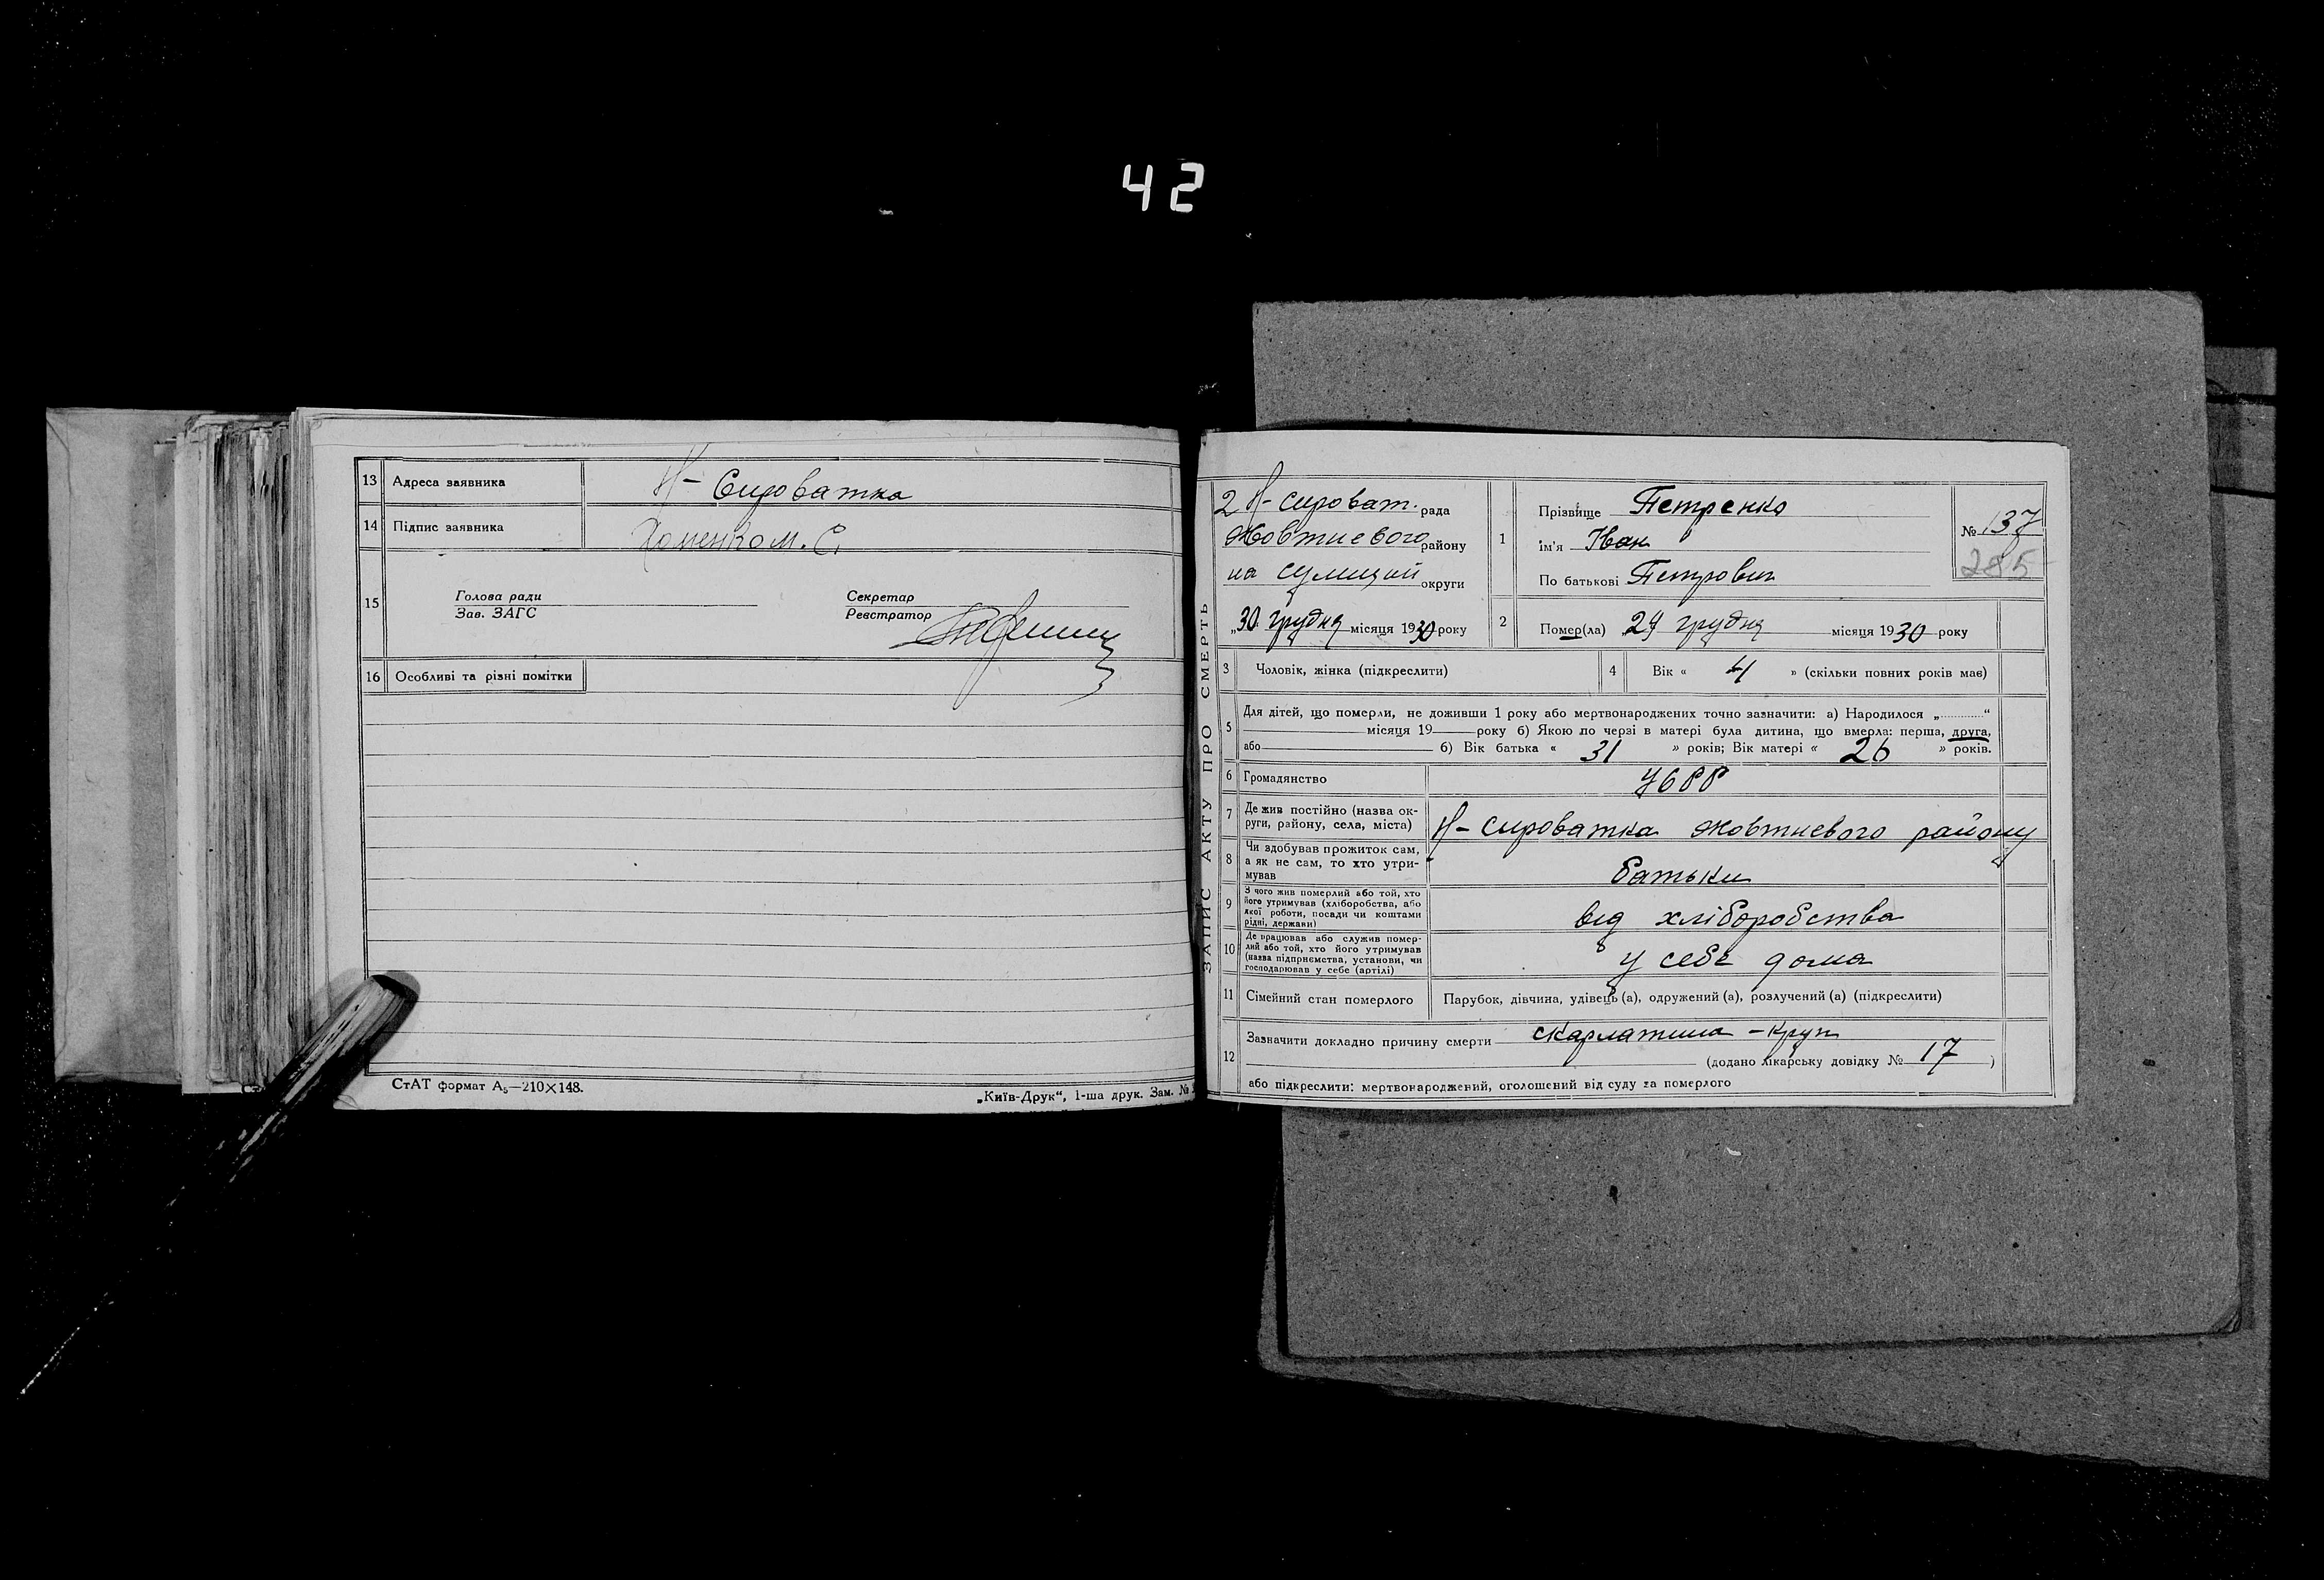 42
13 Адреса заявника Н- Сироватка
14 Підпис заявника Хоменко М. С.
15 Голова ради Секретар
Зав. ЗАГС Реєстратор
16 Особливі та різні помітки
СтАТ формат А₅—210×148.
„Київ-Друк“, 1-ша друк. Зам. №
ЗАПИС АКТУ ПРО СМЕРТЬ
2 Н- сироват. рада
Жовтневого району
на сумщині округи
„30 грудня місяця 1930 року
1 Прізвище Петренко
ім'я Іван
По батькові Петрович
№ 137
285
2 Помер(ла) 24 грудня місяця 1930 року
3 Чоловік, жінка (підкреслити)
4 Вік « 4 » (скільки повних років має)
5 Для дітей, що померли, не доживши 1 року або мертвонароджених точно зазначити: а) Народилося „............“
місяця 19 року б) Якою по черзі в матері була дитина, що вмерла: перша, друга,
або б) Вік батька « 31 » років; Вік матері « 26 » років.
6 Громадянство УСРР
7 Де жив постійно (назва ок-
руги, району, села, міста) Н- сироватка Жовтневого району
8 Чи здобував прожиток сам,
а як не сам, то хто утри-
мував батьки
9 З чого жив померлий або той, хто
його утримував (хліборобства, або
якої роботи, посади чи коштами
рідні, держави) від хліборобства
10 Де працював або служив помер-
лий або той, хто його утримував
(назва підприємства, установи, чи
господарював у себе (артілі) у себе дома
11 Сімейний стан померлого Парубок, дівчина, удівець (а), одружений (а), розлучений (а) (підкреслити)
12 Зазначити докладно причину смерти скарлатина - круп
(додано лікарську довідку № 17 )
або підкреслити: мертвонароджений, оголошений від суду за померлого